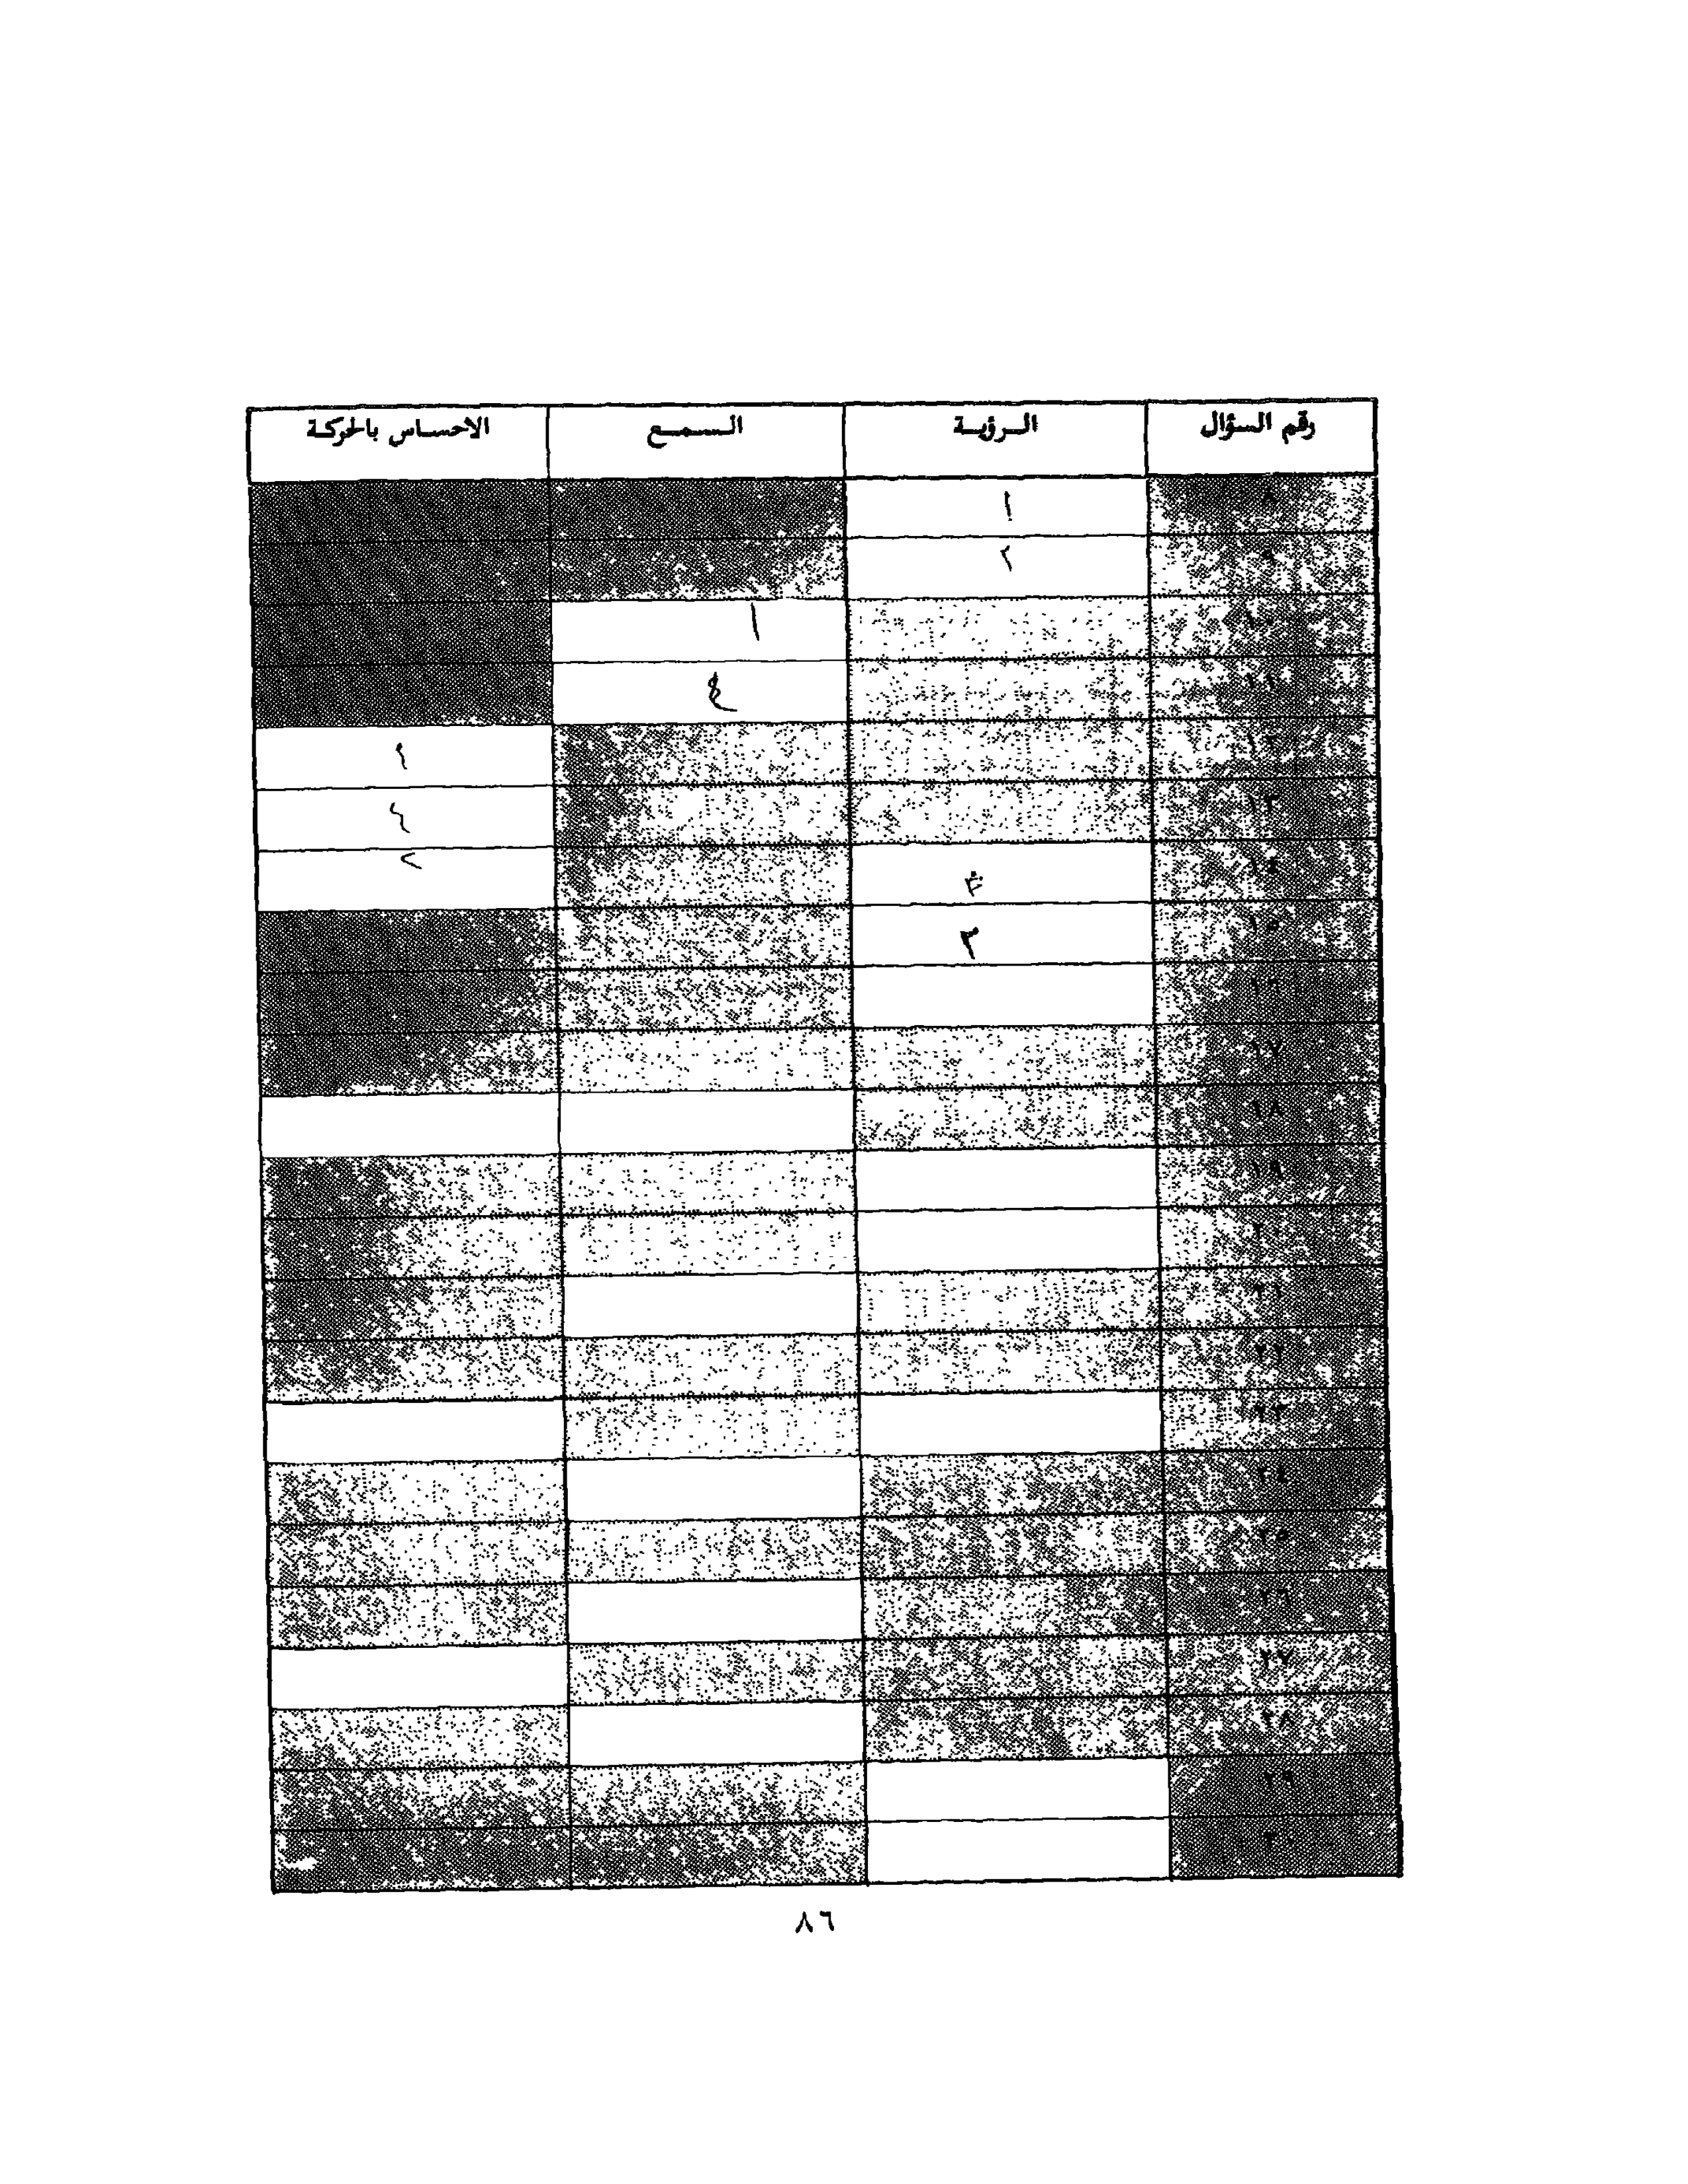 رقم السؤال الرؤية السمع الاحساس بالحركة
٨ ١
٩ ٢
١٠ ١
١١ ٤
١٢ ١
١٣ ٤
١٤
١٥ ٢
١٦
١٧
١٨
١٩
٢٠
٢١
٢٢
٢٣
٢٤
٢٥
٢٦
٢٧
٢٨
٢٩
٣٠
٨٦